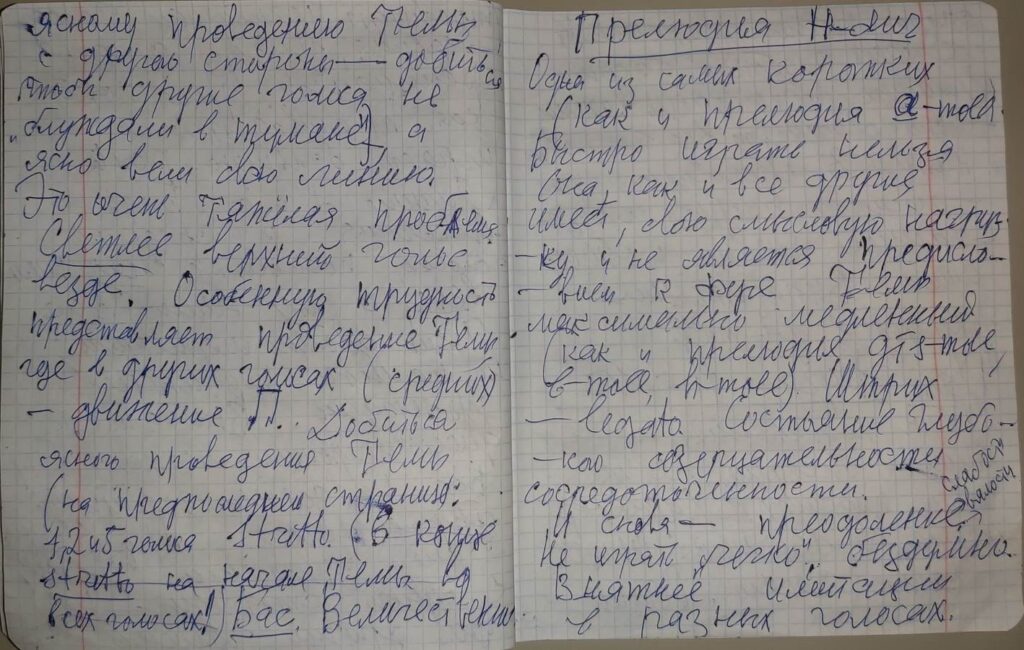 ясному проведению Темы
с другой стороны — добиться
чтобы другие голоса не
"блуждали в тумане", а
ясно вели свою линию.
Это очень тяжёлая проблема.
Светлее верхний голос
везде. Особенную трудность
представляет проведение Темы
где в других голосах (средних)
— движение П.. Добиться
ясного проведения Темы
(на предпоследней странице:
1, 2 и 5 голоса Stretto. (В конце
Stretto на начале Темы во
всех голосах!) Бас. Величественно
Прелюдия H-dur
Одна из самых коротких
(как и прелюдия a-moll.
Быстро играть нельзя
Она, как и все другие
имеет свою смысловую нагруз-
-ку и не является предисло-
-вием к фуге Темп
максимально медленный
(как и прелюдия
b-moll, h-moll). Штрих
— legato Состояние глубо-
-кой созерцательности
сосредоточенности.
И снова — преодоление слабости вялости
Не играй "легко", бездумно.
Внятнее имитации
в разных голосах.